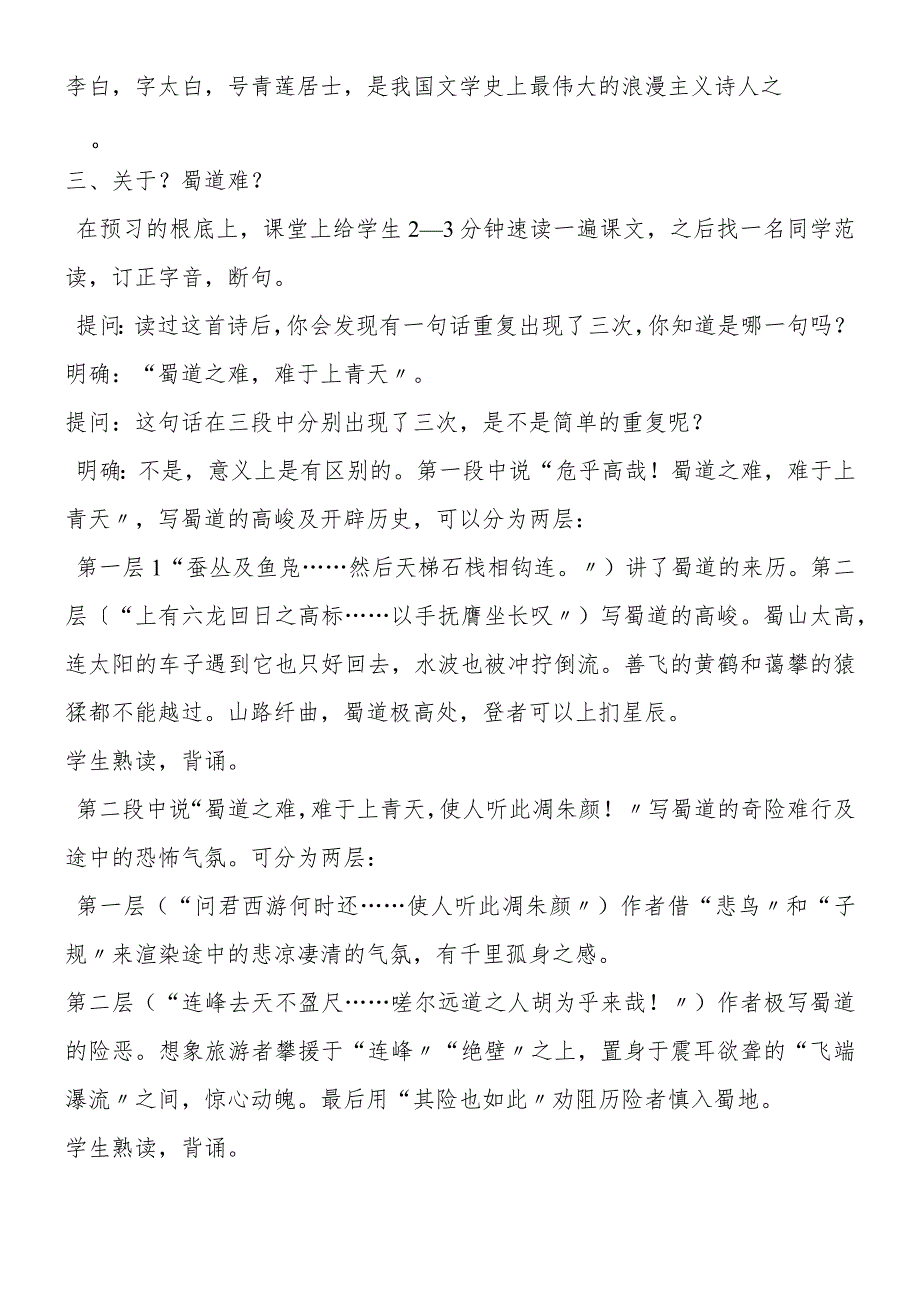 李白，字太白，号青莲居士，是我国文学史上最伟大的浪漫主义诗人之
。
三、关于？蜀道难？
在预习的根底上，课堂上给学生2—3分钟速读一遍课文，之后找一名同学范
读，订正字音，断句。
提问：读过这首诗后，你会发现有一句话重复出现了三次，你知道是哪一句吗？
明确：“蜀道之难，难于上青天〃。
提问：这句话在三段中分别出现了三次，是不是简单的重复呢？
明确：不是，意义上是有区别的。第一段中说“危乎高哉！蜀道之难，难于上
青天〃，写蜀道的高峻及开辟历史，可以分为两层：
第一层1“蚕丛及鱼凫……然后天梯石栈相钩连。〃）讲了蜀道的来历。第二
层〔“上有六龙回日之高标……以手抚膺坐长叹〃）写蜀道的高峻。蜀山太高，
连太阳的车子遇到它也只好回去，水波也被冲拧倒流。善飞的黄鹤和蔼攀的猿
猱都不能越过。山路纤曲，蜀道极高处，登者可以上扪星辰。
学生熟读，背诵。
第二段中说“蜀道之难，难于上青天，使人听此凋朱颜！〃写蜀道的奇险难行及
途中的恐怖气氛。可分为两层：
第一层（“问君西游何时还……使人听此凋朱颜〃）作者借“悲鸟〃和“子
规〃来渲染途中的悲凉凄清的气氛，有千里孤身之感。
第二层（“连峰去天不盈尺……嗟尔远道之人胡为乎来哉！〃）作者极写蜀道
的险恶。想象旅游者攀援于“连峰〃“绝壁〃之上，置身于震耳欲聋的“飞端
瀑流〃之间，惊心动魄。最后用“其险也如此〃劝阻历险者慎入蜀地。
学生熟读，背诵。